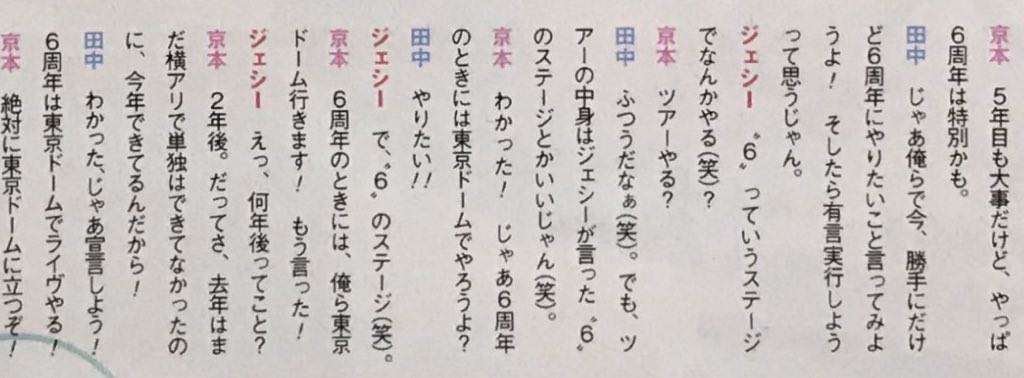 京本　５年目も大事だけど、やっぱ
６周年は特別かも。
田中　じゃあ俺らで今、勝手にだけ
ど６周年にやりたいこと言ってみよ
うよ！　そしたら有言実行しよう
って思うじゃん。
ジェシー　〝６〟っていうステージ
でなんかやる(笑)？
京本　ツアーやる？
田中　ふつうだなぁ(笑)。でも、ツ
アーの中身はジェシーが言った〝６〟
のステージとかいいじゃん(笑)。
京本　わかった！　じゃあ６周年
のときには東京ドームでやろうよ？
田中　やりたい!!
ジェシー　で、〝６〟のステージ(笑)。
京本　６周年のときには、俺ら東京
ドーム行きます！　もう言った！
ジェシー　えっ、何年後ってこと？
京本　２年後。だってさ、去年はま
だ横アリで単独はできてなかったの
に、今年できてるんだから！
田中　わかった、じゃあ宣言しよう！
６周年は東京ドームでライヴやる！
京本　絶対に東京ドームに立つぞ！